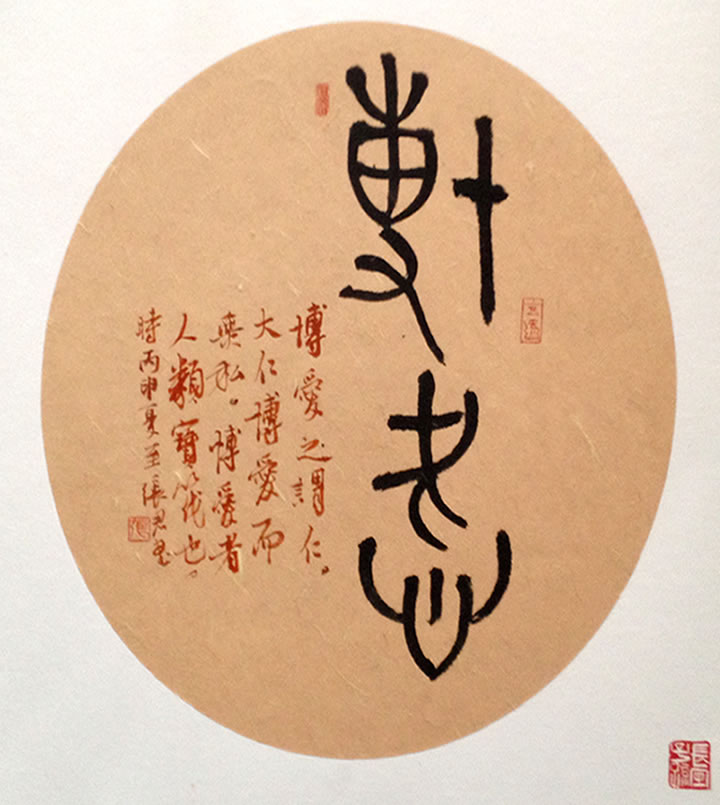 博愛
博愛之謂仁。
大仁博愛而
無私。博愛者
人類寶筏也。
時丙申夏至張